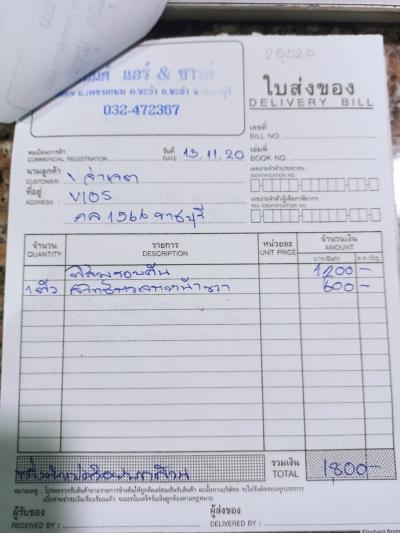 25520
แอร์ & ซาวด์
032-472367
ใบส่งของ
DELIVERY BILL
เลขที่
BILL NO.
ทะเบียนการค้า
COMMERCIAL REGISTRATION
วันที่
DATE 13,11,20
เล่มที่
BOOK NO.
นามลูกค้า
CUSTOMER
เลขประจำตัวประชาชน
IDENTIFICATION NO.
ที่อยู่
ADDRESS
VIOS
เลขประจำตัวผู้เสียภาษีอากร
TAX IDENTIFICATION NO.
กล 1566 ราชบุรี
จำนวน
QUANTITY
รายการ
DESCRIPTION
หน่วยละ
UNIT PRICE
จำนวนเงิน
AMOUNT
บาท/Baht
ส.ต./Stg.
ฟิล์มรอบคัน 1200-
1 ตัว 600-
รวมเงิน
TOTAL 1800-
หมายเหตุ : โปรดตรวจรับสินค้าตามรายการข้างต้นให้ถูกต้องก่อนเซ็นรับสินค้า
ผู้รับของ
RECEIVED BY :
ผู้ส่งของ
DELIVERED BY :
Elephant Brand